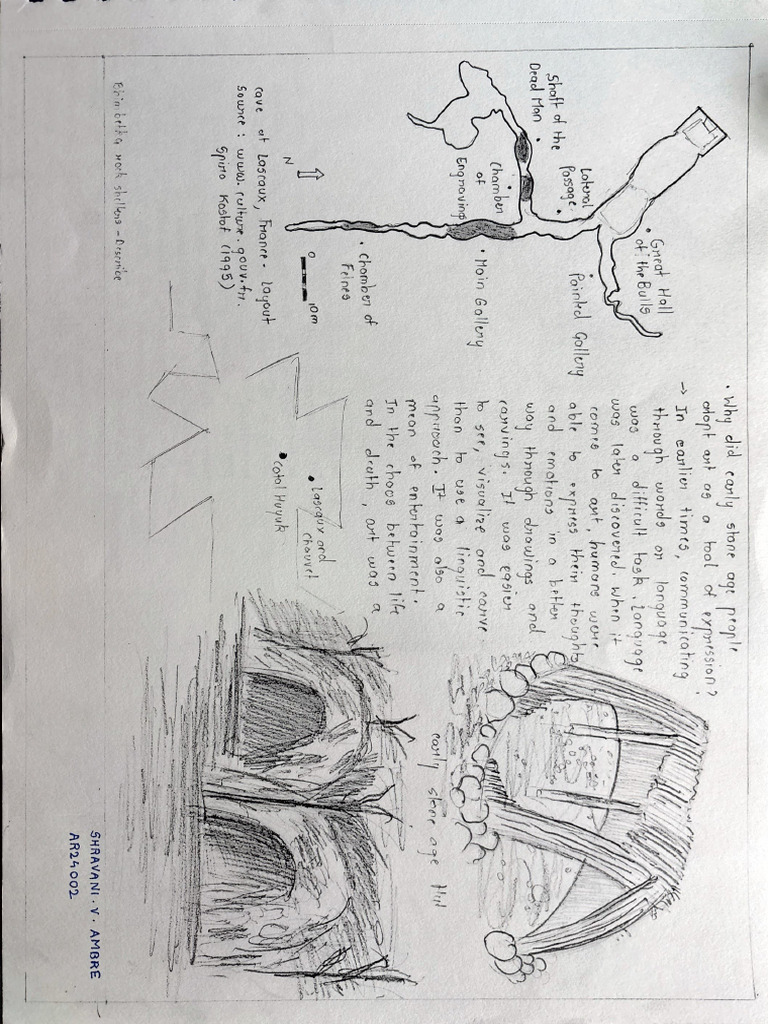 Shaft of the
Dead Man
Lateral
Passage
Chamber
of
Engraving
Great Hall
of the Bulls
Painted Gallery
Main Gallery
Chamber of
Felnes
N
0
10m
cave at Lascaux, France - Layout
Source : www.culture.gouv.fr.
Spiro Kostof (1995)
• Why did early stone age people
adopt art as a tool of expression?
→ In earlier times, communicating
through words or language
was a difficult task. Language
was later discovered. When it
comes to art, humans were
able to express their thoughts
and emotions in a better
way through drawings and
carvings. It was easier
to see, visualize and carve
than to use a linguistic
approach. It was also a
mean of entertainment.
In the chaos between life
and death, art was a
Lascaux and
chauvet
Catal Huyuk
early stone age Hut
rock shelters -
SHRAVANI . V. AMBRE
AR24002